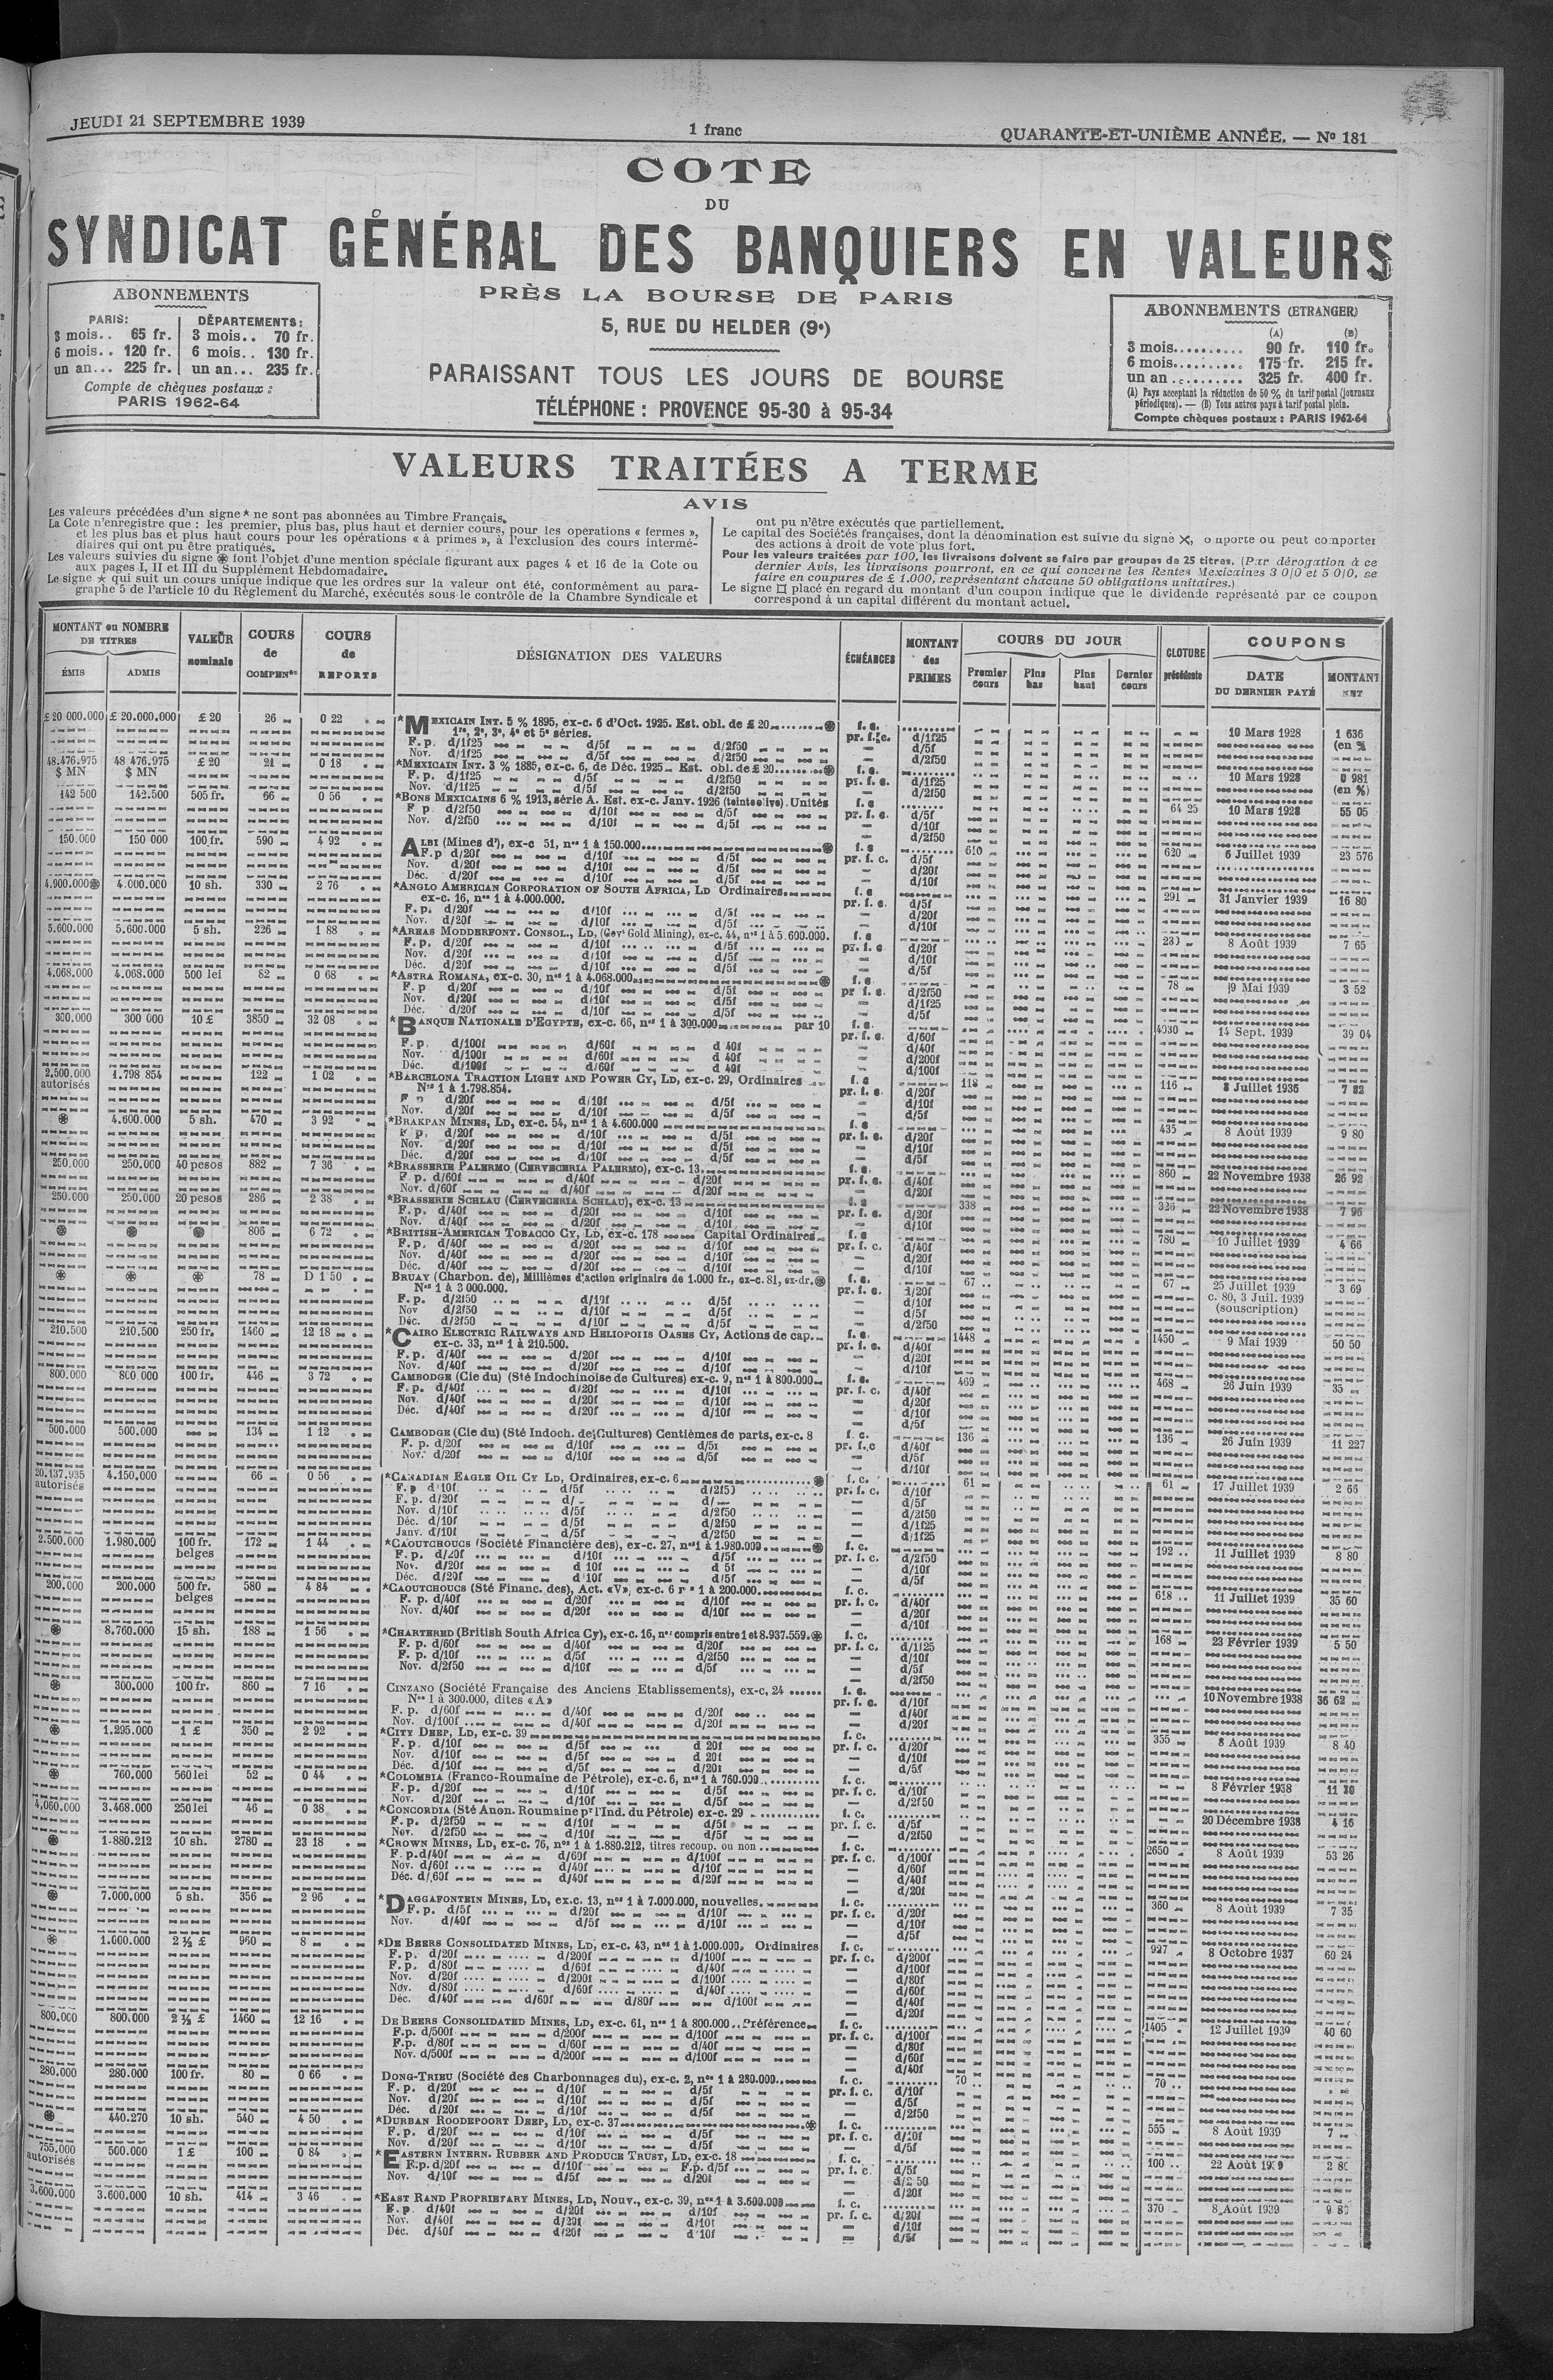 JEUDI 21 SEPTEMBRE 1939
1 franc
QUARANTE-ET-UNIÈME ANNÉE. — Nº 181
COTE
DU
SYNDICAT GÉNÉRAL DES BANQUIERS EN VALEURS
PRÈS LA BOURSE DE PARIS
5, RUE DU HELDER (9e)
PARAISSANT TOUS LES JOURS DE BOURSE
TÉLÉPHONE : PROVENCE 95-30 à 95-34
ABONNEMENTS
PARIS: DÉPARTEMENTS:
3 mois.. 65 fr. 3 mois.. 70 fr.
6 mois.. 120 fr. 6 mois.. 130 fr.
un an... 225 fr. un an... 235 fr.
Compte de chèques postaux :
PARIS 1962-64
ABONNEMENTS (ETRANGER)
(A) (B)
3 mois.......... 90 fr. 110 fr.
6 mois.......... 175 fr. 215 fr.
un an .......... 325 fr. 400 fr.
(A) Pays acceptant la réduction de 50 % du tarif postal (journaux
périodiques). — (B) Tous autres pays à tarif postal plein.
Compte chèques postaux : PARIS 1962-64
VALEURS TRAITÉES A TERME
AVIS
Les valeurs précédées d'un signe * ne sont pas abonnées au Timbre Français.
La Cote n'enregistre que : les premier, plus bas, plus haut et dernier cours, pour les operations « fermes »,
et les plus bas et plus haut cours pour les opérations « à primes », à l'exclusion des cours intermé-
diaires qui ont pu être pratiqués.
Les valeurs suivies du signe ⊛ font l'objet d'une mention spéciale figurant aux pages 4 et 16 de la Cote ou
aux pages I, II et III du Supplément Hebdomadaire.
Le signe ★ qui suit un cours unique indique que les ordres sur la valeur ont été, conformément au para-
graphe 5 de l'article 10 du Règlement du Marché, exécutés sous le contrôle de la Chambre Syndicale et
ont pu n'être exécutés que partiellement.
Le capital des Sociétés françaises, dont la dénomination est suivie du signe ✕, comporte ou peut comporter
des actions à droit de vote plus fort.
Pour les valeurs traitées par 100, les livraisons doivent se faire par groupes de 25 titres. (Par dérogation à ce
dernier Avis, les livraisons pourront, en ce qui concerne les Rentes Mexicaines 3 0|0 et 5 0|0, se
faire en coupures de £ 1.000, représentant chacune 50 obligations unitaires.)
Le signe □ placé en regard du montant d'un coupon indique que le dividende représenté par ce coupon
correspond à un capital différent du montant actuel.
MONTANT ou NOMBRE DE TITRES
ÉMIS ADMIS
VALEUR nominale
COURS de COMPENon
COURS de REPORTS
DÉSIGNATION DES VALEURS
ÉCHÉANCES
MONTANT des PRIMES
COURS DU JOUR
Premier cours Plus bas Plus haut Dernier cours
CLOTURE précédente
COUPONS
DATE DU DERNIER PAYÉ
MONTANT NET
£ 20 000.000 £ 20.000.000 £ 20 26 0 22 *MEXICAIN INT. 5 % 1895, ex-c. 6 d'Oct. 1925. Est. obl. de £ 20 ⊛ f. c. 10 Mars 1928 1 636 (en %
1re, 2e, 3e, 4e et 5e séries. pr. f. c. d/1f25
F. p. d/1f25 d/5f d/2f50 — d/5f
Nov. d/1f25 d/5f d/2f50 — d/2f50
48.476.975 $ MN 48 476.975 $ MN £ 20 21 0 18 *MEXICAIN INT. 3 % 1885, ex-c. 6, de Déc. 1925 Est. obl. de £ 20 ⊛ f. c. 10 Mars 1928 0 981 (en %)
F. p. d/1f25 d/5f d/2f50 pr. f. c. d/1f25
Nov. d/1f25 d/5f d/2f50 — d/2f50
142 500 142.500 505 fr. 66 0 56 *BONS MEXICAINS 6 % 1913, série A. Est. ex-c. Janv. 1926 (teinte olive). Unités f. c 64 25 10 Mars 1928 55 05
F p d/2f50 d/10f d/5f pr. f. c. d/5f
Nov. d/2f50 d/10f d/5f — d/10f
— d/2f50
150.000 150 000 100 fr. 590 4 92 ALBI (Mines d'), ex-c 51, nos 1 à 150.000 ⊛ f. c 610 620 6 Juillet 1939 23 576
F.p d/20f d/10f d/5f pr. f. c. d/5f
Nov. d/20f d/10f d/5f — d/20f
Déc. d/20f d/10f d/5f — d/10f
4.900.000⊛ 4.000.000 10 sh. 330 2 76 *ANGLO AMERICAN CORPORATION OF SOUTH AFRICA, LD Ordinaires f. c 291 31 Janvier 1939 16 80
ex-c. 16, nos 1 à 4.000.000. pr. f. c. d/5f
F. p. d/20f d/10f d/5f — d/20f
Nov. d/20f d/10f d/5f — d/10f
5.600.000 5.600.000 5 sh. 226 1 88 *AREAS MODDERFONT. CONSOL., LD, (Govt Gold Mining), ex-c. 44, nos 1 à 5.600.000. f. c 8 Août 1939 7 65
F. p. d/20f d/10f d/5f pr. f. c d/20f
Nov. d/20f d/10f d/5f — d/10f
Déc. d/20f d/10f d/5f — d/5f
4.068.000 4.068.000 500 lei 82 0 68 *ASTRA ROMANA, ex-c. 30, nos 1 à 4.068.000 ⊛ f. c. 78 19 Mai 1939 3 52
F. p d/20f d/10f d/5f pr f. c. d/2f50
Nov. d/20f d/10f d/5f — d/1f25
Déc. d/20f d/10f d/5f — d/5f
300.000 300 000 10 £ 3850 32 08 *BANQUE NATIONALE D'EGYPTE, ex-c. 66, nos 1 à 300.000 par 10 f. c. 4030 14 Sept. 1939 39 04
pr. f. c. d/60f
F. p. d/100f d/60f d 40f — d/40f
Nov. d/100f d/60f d 40f — d/200f
Déc. d/100f d/60f d 40f — d/100f
2.500.000 autorisés 1.798 854 122 1 02 *BARCELONA TRACTION LIGHT AND POWER CY, LD, ex-c. 29, Ordinaires f. c 118 116 8 Juillet 1936 7 82
Nos 1 à 1.798.854. pr. f. c. d/20f
F p d/20f d/10f d/5f — d/10f
Nov. d/20f d/10f d/5f — d/5f
⊛ 4.600.000 5 sh. 470 3 92 *BRAKPAN MINES, LD, ex-c. 54, nos 1 à 4.600.000 f. c 435 8 Août 1939 9 80
F p. d/20f d/10f d/5f pr. f. c. d/20f
Nov. d/20f d/10f d/5f — d/10f
Déc. d/20f d/10f d/5f — d/5f
250.000 250.000 40 pesos 882 7 36 *BRASSERIE PALERMO (CERVECERIA PALERMO), ex-c. 13 f. c. 860 22 Novembre 1938 26 92
F. p. d/60f d/40f d/20f pr. f. c. d/40f
Nov. d/60f d/40f d/20f — d/20f
250.000 250.000 20 pesos 286 2 38 *BRASSERIE SCHLAU (CERVECERIA SCHLAU), ex-c. 13 f. c 338 326 22 Novembre 1938 7 96
F. p. d/40f d/20f d/10f pr. f. c. d/20f
Nov. d/40f d/20f d/10f — d/10f
⊛ ⊛ ⊛ 806 6 72 *BRITISH-AMERICAN TOBACCO CY, LD, ex-c. 178 Capital Ordinaires f. c 780 10 Juillet 1939 4 66
F. p. d/40f d/20f d/10f pr. f. c. d/40f
Nov. d/40f d/20f d/10f — d/20f
Déc. d/40f d/20f d/10f — d/10f
⊛ ⊛ ⊛ 78 D 1 50 BRUAY (Charbon. de), Millièmes d'action originaire de 1.000 fr., ex-c. 81, ex-dr. ⊛ f. c. 67 67 25 Juillet 1939 3 69
Nos 1 à 3 000.000. pr. f. c. d/20f c. 80, 3 Juil. 1939
F. p. d/2f50 d/10f d/5f — d/10f (souscription)
Nov d/2f50 d/10f d/5f — d/5f
Déc. d/2f50 d/10f d/5f — d/2f50
210.500 210.500 250 fr. 1460 12 18 *CAIRO ELECTRIC RAILWAYS AND HELIOPOLIS OASES CY, Actions de cap. f. c. 1448 1450 9 Mai 1939 50 50
ex-c. 33, nos 1 à 210.500. pr. f. c. d/40f
F. p. d/40f d/20f d/10f — d/20f
Nov. d/40f d/20f d/10f — d/10f
800.000 800 000 100 fr. 446 3 72 CAMBODGE (Cie du) (Sté Indochinoise de Cultures) ex-c. 9, nos 1 à 800.000 f. c. 469 468 26 Juin 1939 35
F. p. d/40f d/20f d/10f pr. f. c. d/40f
Nov. d/40f d/20f d/10f — d/20f
Déc. d/40f d/20f d/10f — d/10f
— d/5f
500.000 500.000 134 1 12 CAMBODGE (Cie du) (Sté Indoch. de Cultures) Centièmes de parts, ex-c. 8 f. c. 136 136 26 Juin 1939 11 227
F. p. d/20f d/10f d/5f pr. f. c d/40f
Nov. d/20f d/10f d/5f — d/5f
— d/10f
20.137.935 autorisés 4.150.000 66 0 56 *CANADIAN EAGLE OIL CY LD, Ordinaires, ex-c. 6 ⊛ f. c. 61 61 17 Juillet 1939 2 66
F. p d 10f d/5f d/2f50 pr. f. c. d/10f
F. p. d/20f d/ d/ — d/5f
Nov. d/10f d/5f d/2f50 — d/2f50
Déc. d/10f d/5f d/2f50 — d/1f25
Janv. d/10f d/5f d/2f50 — d/1f25
2.500.000 1.980.000 100 fr. belges 172 1 44 *CAOUTCHOUCS (Société Financière des), ex-c. 27, nos 1 à 1.980.000 ⊛ f. c. 192 11 Juillet 1939 8 80
F. p. d/20f d/10f d/5f pr. f. c. d/2f50
Nov. d/20f d 10f d 5f — d/10f
Déc. d/20f d 10f d/5f — d/5f
200.000 200.000 500 fr. belges 580 4 84 *CAOUTCHOUCS (Sté Financ. des), Act. «V», ex-c. 6 nos 1 à 200.000 f. c. 618 11 Juillet 1939 35 60
F. p. d/40f d/20f d/10f pr. f. c. d/40f
Nov. d/40f d/20f d/10f — d/20f
— d/10f
⊛ 8.760.000 15 sh. 188 1 56 *CHARTERED (British South Africa Cy), ex-c. 16, nos compris entre 1 et 8.937.559. ⊛ f. c. 168 23 Février 1939 5 50
F. p. d/60f d/40f d/20f pr. f. c. d/1f25
F. p. d/10f d/5f d/2f50 — d/10f
Nov. d/2f50 d/10f d/5f — d/5f
— d/2f50
⊛ 300.000 100 fr. 860 7 16 CINZANO (Société Française des Anciens Etablissements), ex-c, 24 f. c. 10 Novembre 1938 36 62
Nos 1 à 300.000, dites «A» pr. f. c. d/10f
F. p. d/60f d/40f d/20f — d/40f
Nov. d/100f d/40f d/20f — d/20f
⊛ 1.295.000 1 £ 350 2 92 *CITY DEEP, LD, ex-c. 39 f. c. 355 8 Août 1939 8 40
F. p. d/10f d/5f d 20f pr. f. c. d/20f
Nov. d/10f d/5f d 20f — d/10f
Déc. d/10f d/5f d/20f — d/5f
⊛ 760.000 560 lei 52 0 44 *COLOMBIA (Franco-Roumaine de Pétrole), ex-c. 6, nos 1 à 760.000 f. c. 8 Février 1938 11 30
F. p. d/20f d/10f d/5f pr. f. c. d/10f
Nov. d/20f d/10f d/5f — d/2f50
4,060.000 3.468.000 250 lei 46 0 38 *CONCORDIA (Sté Anon. Roumaine pr l'Ind. du Pétrole) ex-c. 29 f. c. 20 Décembre 1938 4 16
F. p. d/2f50 d/10f d/5f pr. f. c. d/5f
Nov. d/2f50 d/10f d/5f — d/2f50
⊛ 1.880.212 10 sh. 2780 23 18 *CROWN MINES, LD, ex-c. 76, nos 1 à 1.880.212, titres recoup. ou non f. c. 2650 8 Août 1939 53 26
F. p. d/40f d/60f d/100f pr. f. c. d/100f
Nov. d/60f d/40f d/10f — d/60f
Déc. d/.60f d/40f d/20f — d/40f
— d/20f
⊛ 7.000.000 5 sh. 356 2 96 *DAGGAFONTEIN MINES, LD, ex.c. 13, nos 1 à 7.000.000, nouvelles f. c. 360 8 Août 1939 7 35
F. p. d/5f d/20f d/10f pr. f. c. d/20f
Nov. d/40f d/5f d/10f — d/10f
— d/5f
⊛ 1.000.000 2 ½ £ 960 8 *DE BEERS CONSOLIDATED MINES, LD, ex-c. 43, nos 1 à 1.000.000, Ordinaires f. c. 927 8 Octobre 1937 60 24
F. p. d/20f d/200f d/100f pr. f. c. d/200f
F. p. d/80f d/60f d/40f — d/100f
Nov. d/20f d/200f d/100f — d/80f
Nov. d/80f d/60f d/40f — d/60f
Déc. d/40f d/60f d/80f d/100f — d/40f
— d/20f
800.000 800.000 2 ½ £ 1460 12 16 DE BEERS CONSOLIDATED MINES, LD, ex-c. 61, nos 1 à 800.000.. Préférence f. c. 1405 12 Juillet 1939 40 60
F.p. d/500f d/200f d/100f pr. f. c. d/100f
F.p. d/80f d/60f d/40f — d/80f
Nov. d/500f d/200f d/100f — d/60f
— d/40f
280.000 280.000 100 fr. 80 0 66 DONG-TRIEU (Société des Charbonnages du), ex-c. 2, nos 1 à 280.000 f. c. 70 70
F. p. d/20f d/10f d/5f pr. f. c. d/10f
Nov. d/20f d/10f d/5f — d/5f
Déc. d/20f d/10f d/5f — d/2f50
⊛ 440.270 10 sh. 540 4 50 *DURBAN ROODEPOORT DEEP, LD, ex-c. 37 ⊛ f. c. 555 8 Août 1939 7
F. p. d/20f d/10f d/5f pr. f. c. d/10f
Nov. d/20f d/10f d/5f — d/5f
755.000 autorisés 500.000 1 £ 100 0 84 *EASTERN INTERN. RUBBER AND PRODUCE TRUST, LD, ex-c. 18 f. c. 100 22 Août
F.p. d/20f d/10f F.p. d/5f pr. f. c. d/5f
Nov. d/10f d/5f d/20f — d/2 50
— d/20f
3.600.000 3.600.000 10 sh. 414 3 46 *EAST RAND PROPRIETARY MINES, LD, Nouv., ex-c. 39, nos 1 à 3.600.000 f. c. 370 8 Août 1939
F. p d/40f d/20f d/10f pr. f. c. d/20f
Nov. d/40f d/20f d/10f — d/10f
Déc. d/40f d/20f d 10f — d/5f